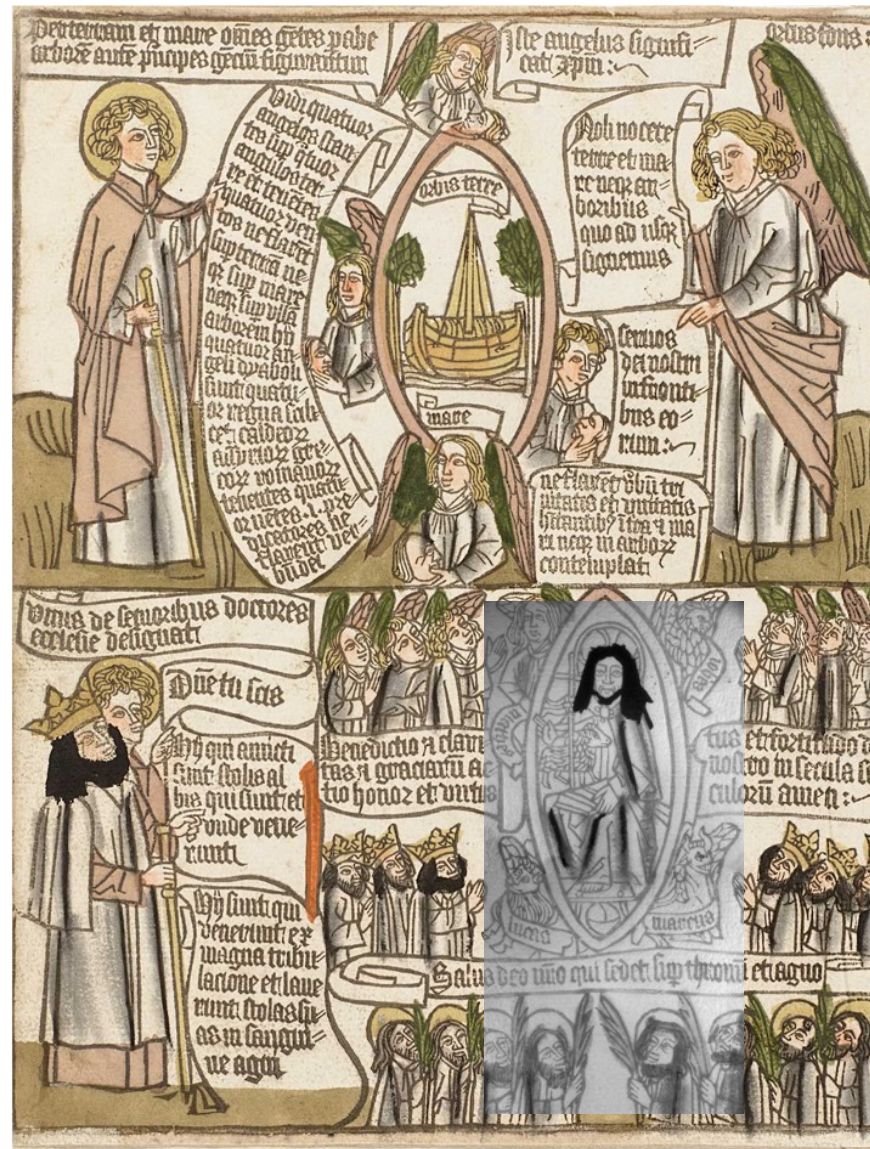 Per terram et mare om̄es gētes p̱ abe
arborē autē p̄ncipes gēciū figurantur
Iste angelus signifi=
cat xp̄m :
orbis
Vidi quatuor
angelos stan
tes sup q̄tuor
angulos ter
re et tenētes
quatuor ven
tos ne flarēt
sup terrā ne
q̨ sup mare
neq̨ sup vllā
arborem hij
quatuor an
geli dyaboli
sunt quatu=
or regna scili
cet caldeoꝝ
assyrioꝝ gre=
coꝝ romanoꝝ
tenentes quatu=
or vētos .i. pre=
dicatores ne
flarent ver=
bū dei
orbis terre
mare
Noli nocere
terre et ma
re neq̨ ar=
boribus
quo ad usq̨
signemus
seruos
dei nostri
in fronti=
bus eo=
rum :
ne flarēt v̄bū tri
nitatis et vnitatis
hītantib9 ī t̄ra ⁊ ma
ri neq̨ in arboꝝ
contemplati
Vnus de senioribus doctores
ecclesie designat
Dn̄e tu scis
Hij qui amicti
sunt stolis al
bis qui sunt et
vnde vene
runt
Hij sunt qui
venerunt ex
magna tribu=
lacione et laue
runt stolas su=
as in sangui=
ne agni
Benedictio ⁊ clari
tas ⁊ graciarū ac
tio honor et virtus
tus et fortitudo d
nostro in secula se
culorū amen :
lucas
marcus
Salus deo nr̄o qui sedet sup thronū et agno